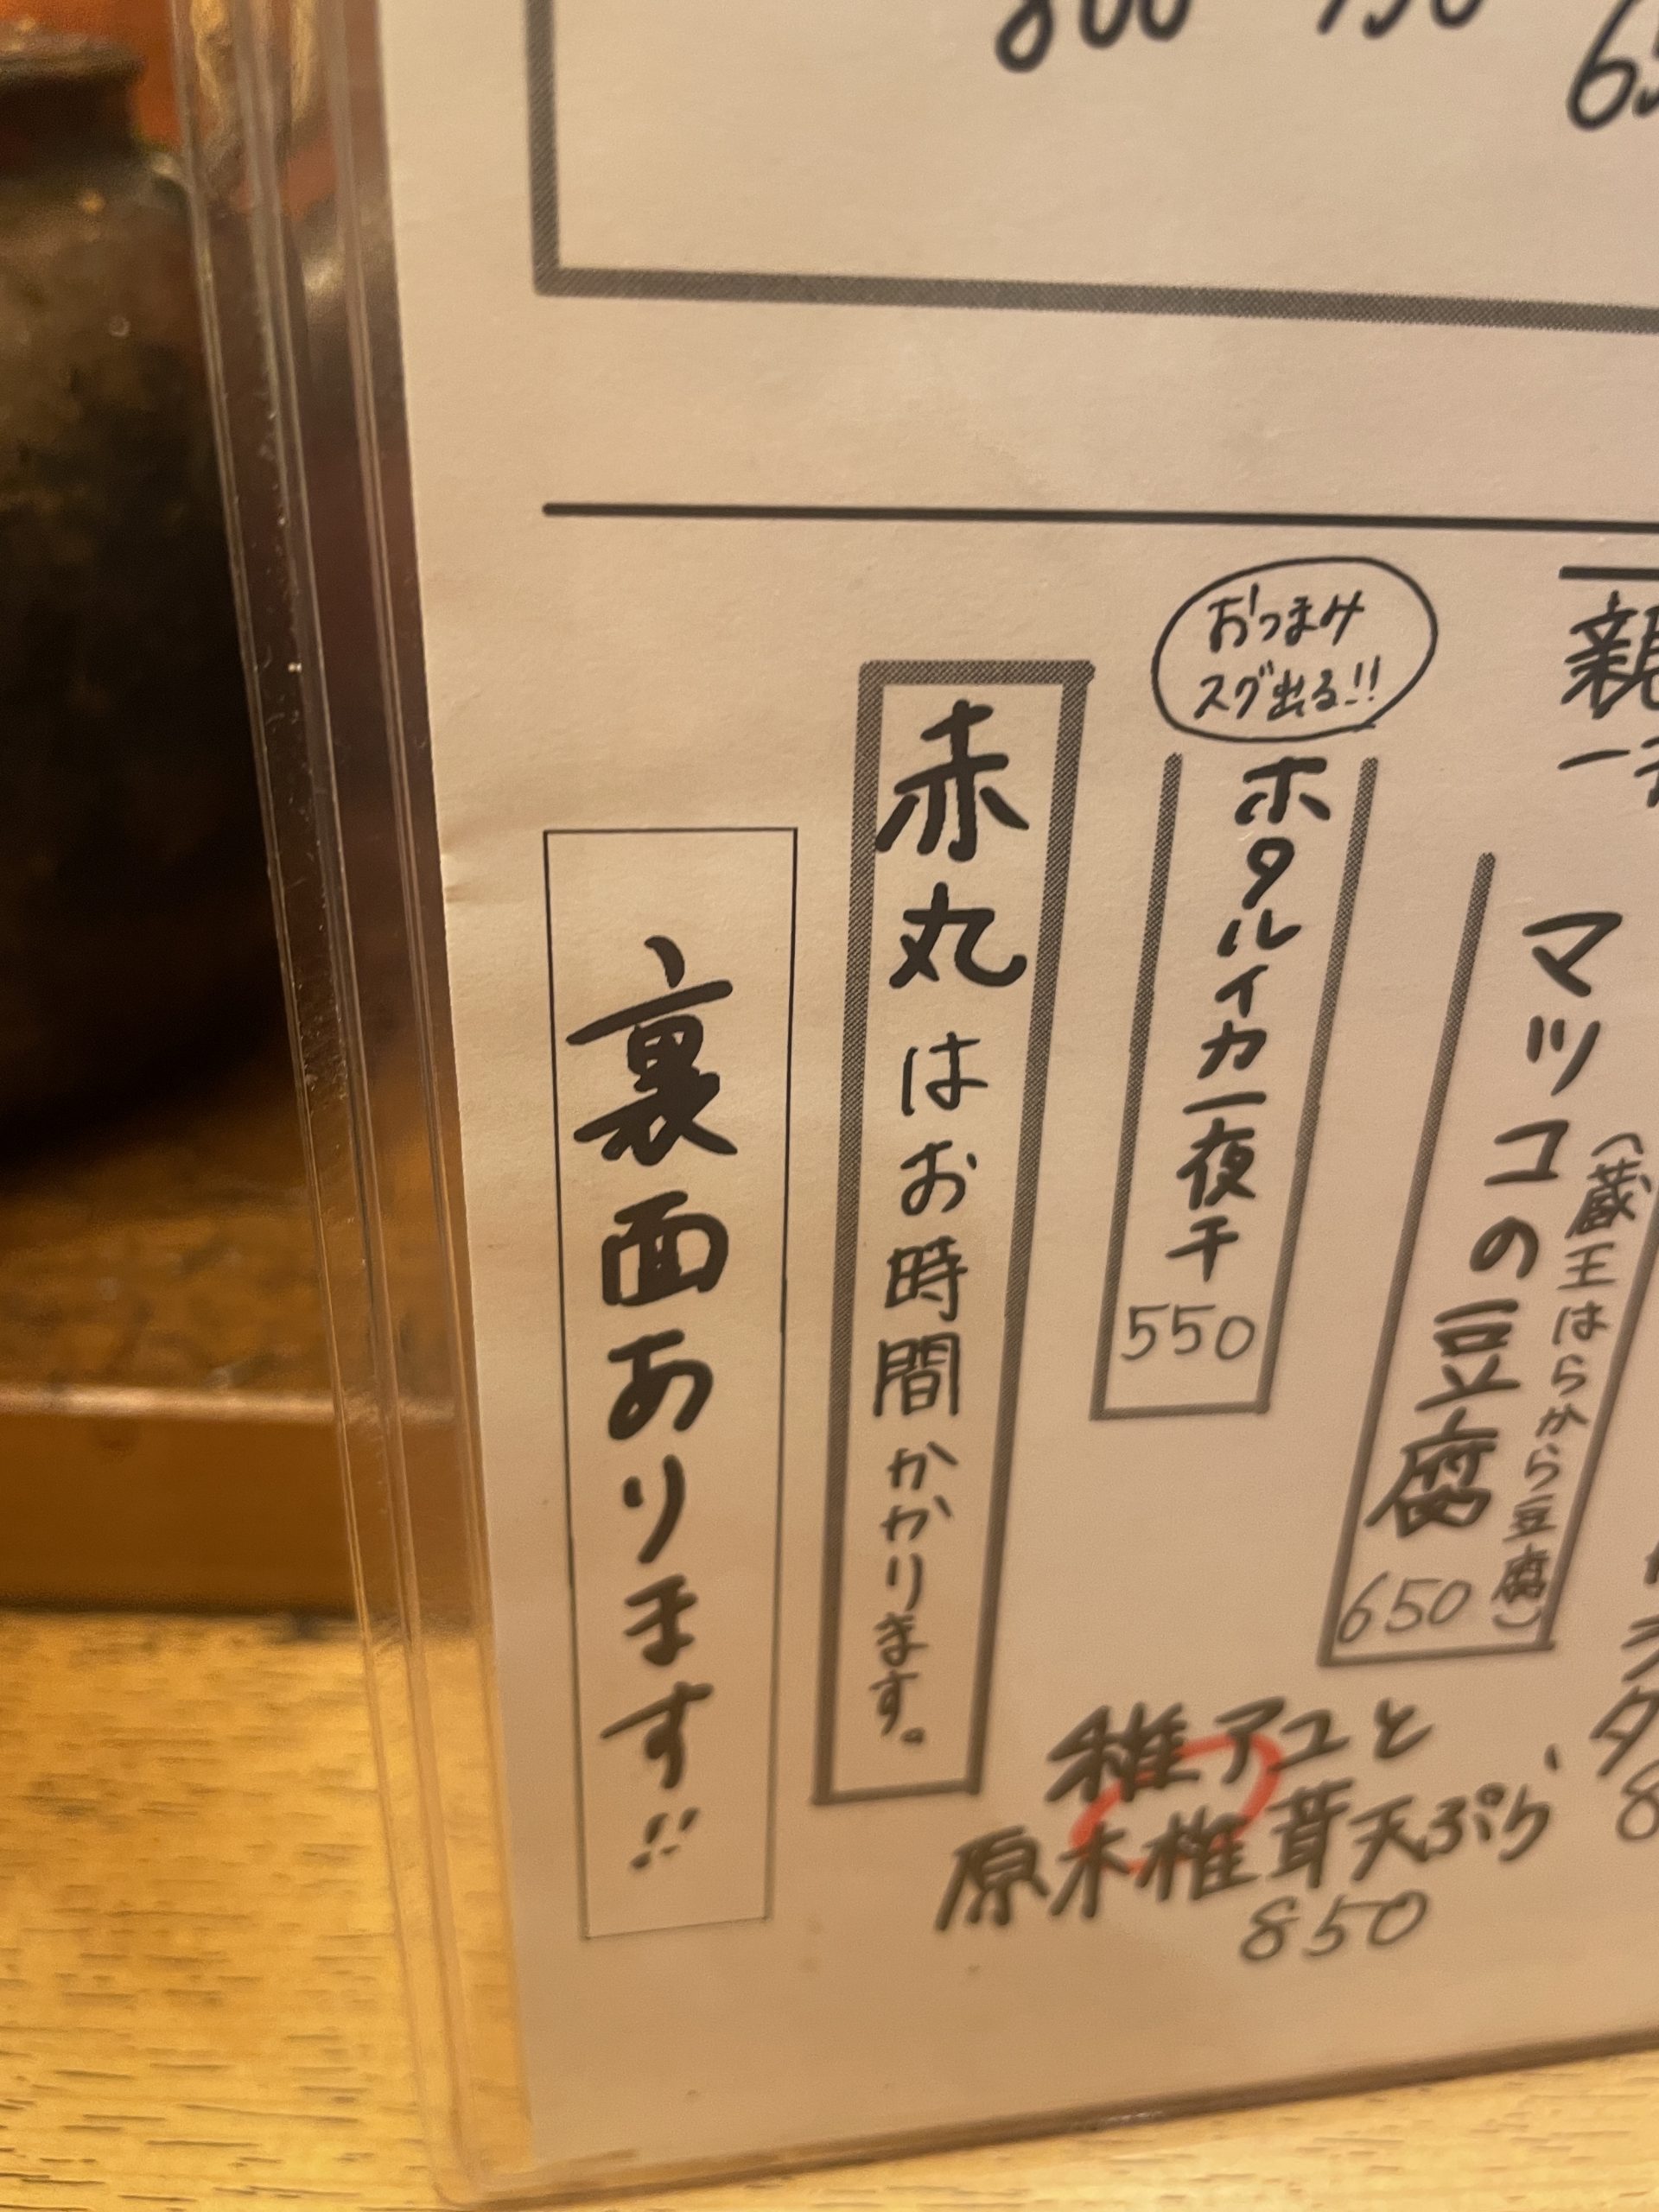 800
おつまみ
スグ出る!!
マツコの豆腐
(蔵王はらから豆腐)
650
ホタルイカ一夜干
550
赤丸はお時間かかります。
裏面あります!!
稚アユと
原木椎茸天ぷら
850